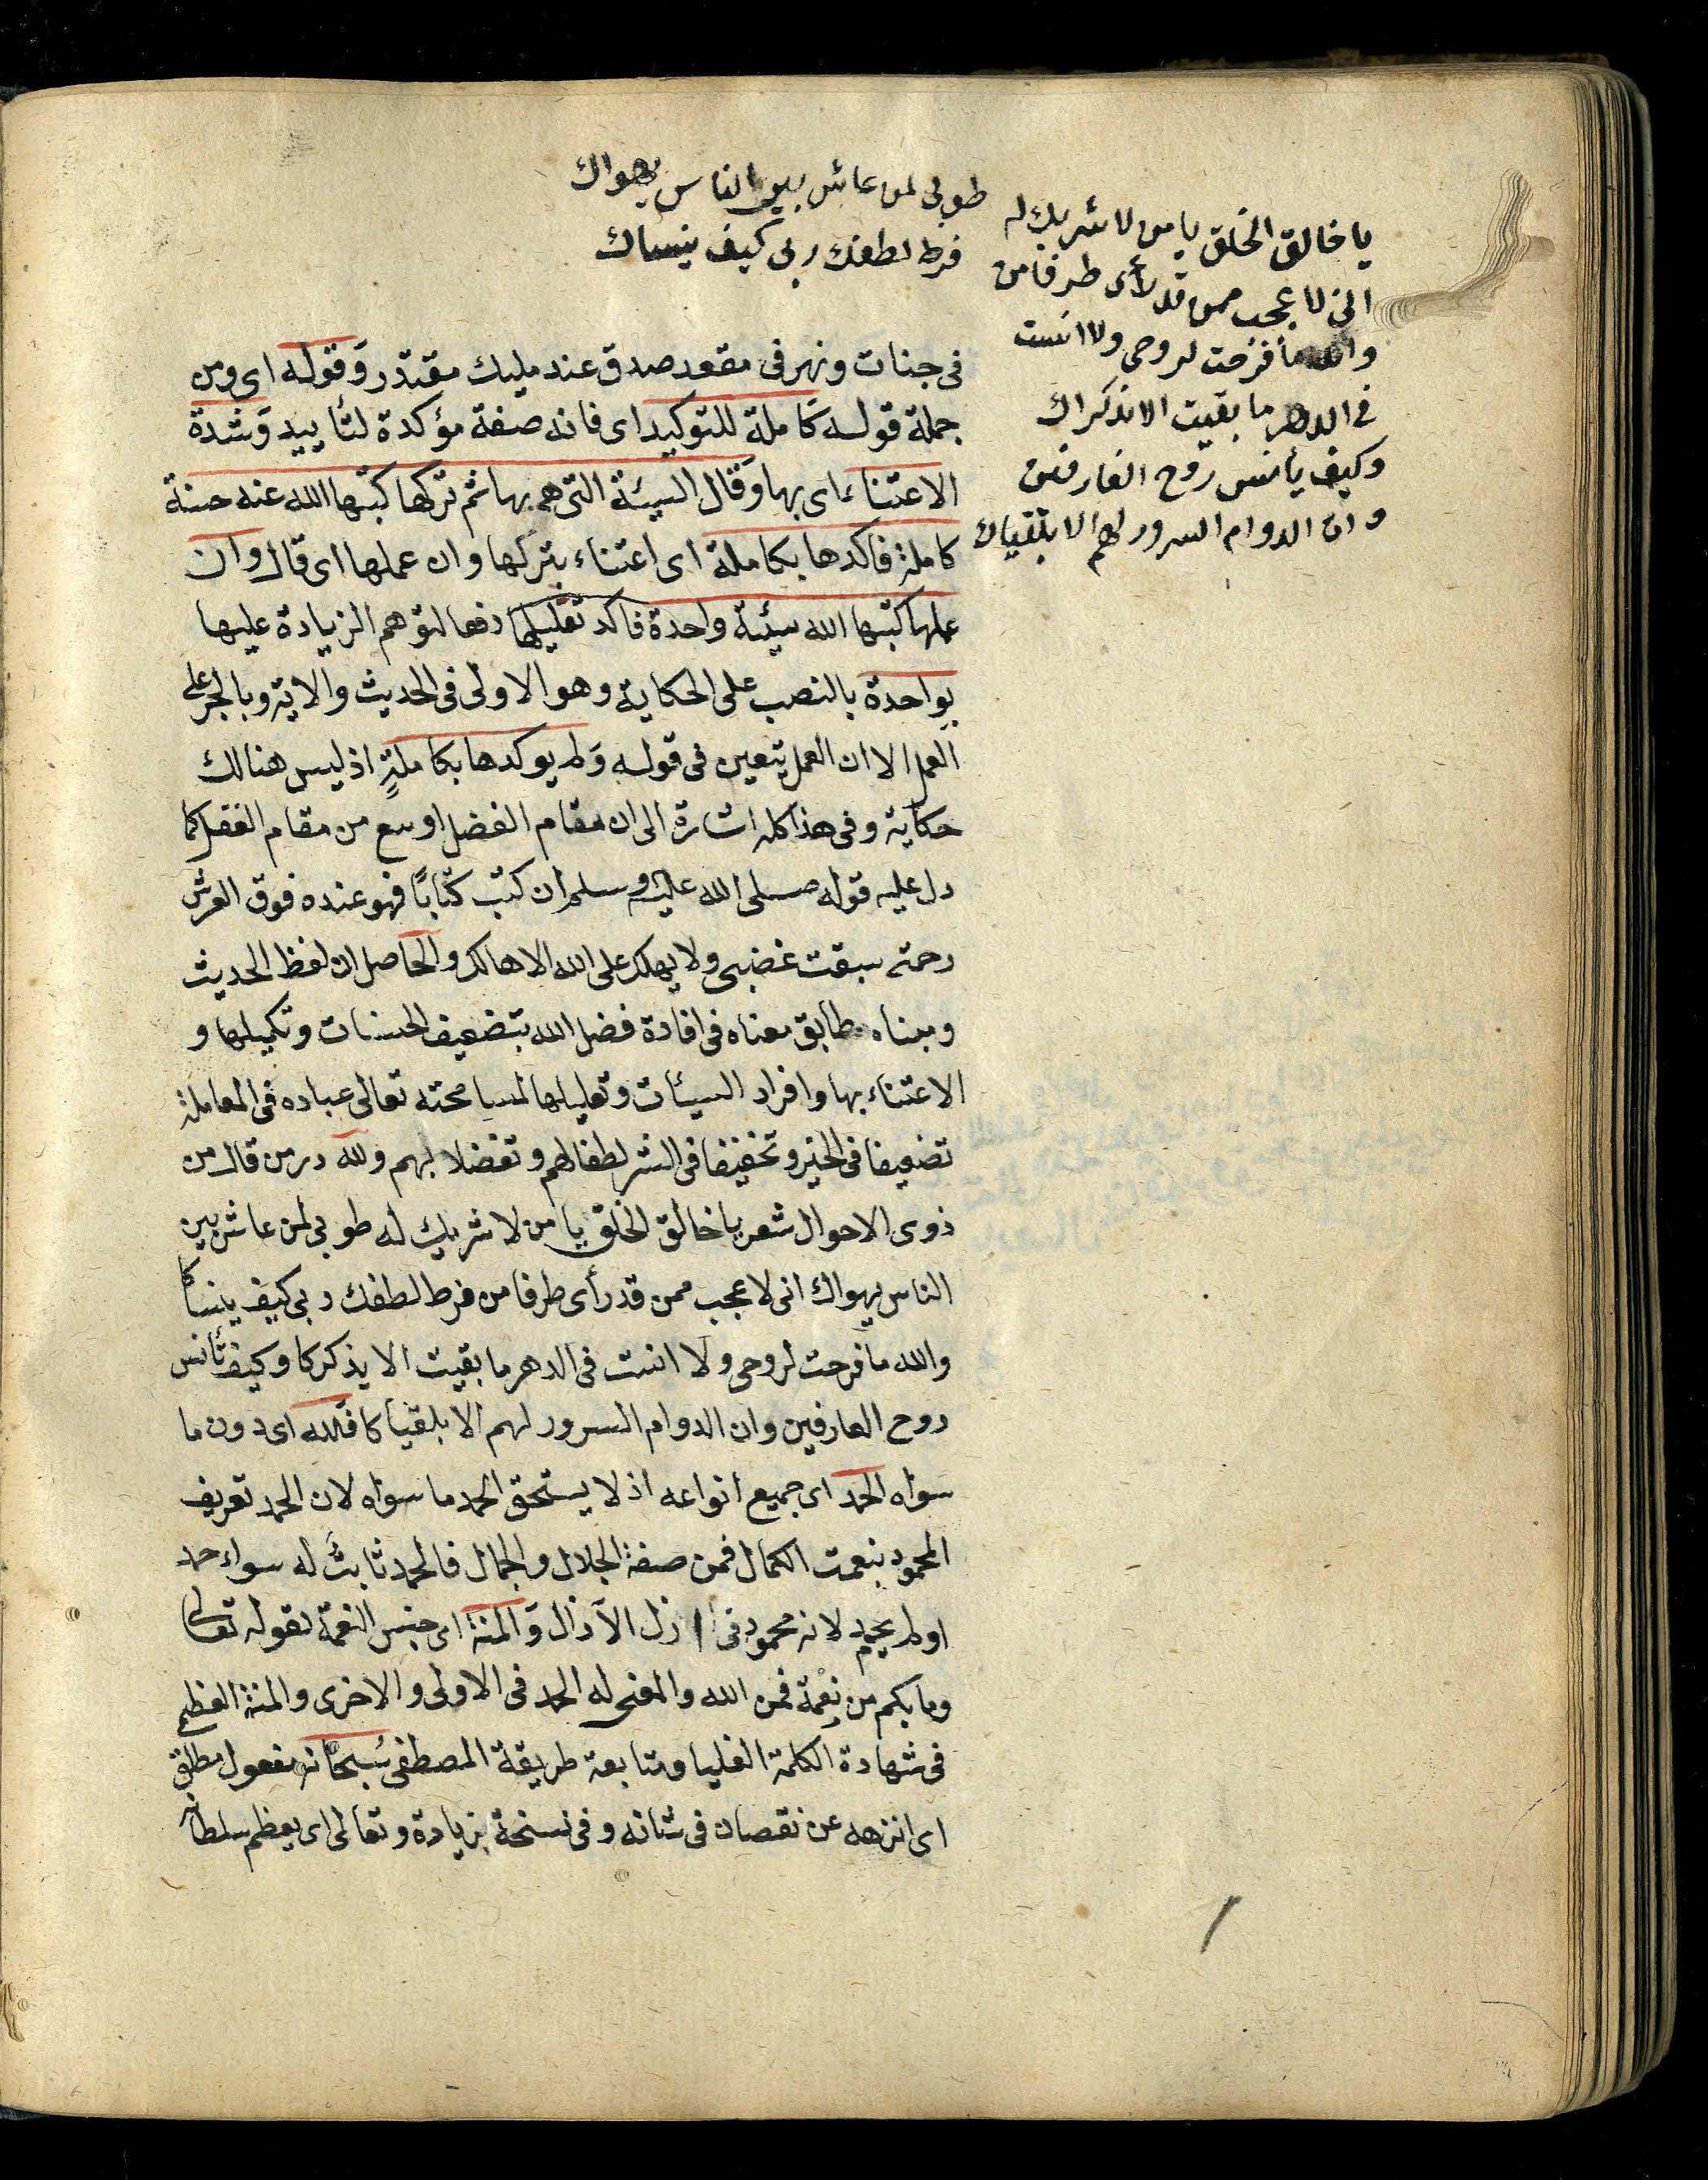 يا خالق الخلق يا من لا شريك له
طوبى لمن عاش بين الناس يهواك
انى لا عجب ممن قد رأى طرفا من
فرط لطفك ربى كيف ينساك
والله ما فرحت لروحى ولا انست
فى الدهر ما بقيت الا بذكراك
وكيف يأنس روح العارفين
و ان الدوام السرور لهم الا بلقياك
فى جنات ونهر فى مقعد صدق عند مليك مقتدر وقوله اى ومن
جملة قوله كاملة للتوكيد اى فانه صفة مؤكدة لتأييد وشدة
الاعتناء اى بها وقال السيئة التى هم بها ثم تركها كتبها الله عنده حسنة
كاملة فاكدها بكاملة اى اعتناء بتركها وان عملها اى قال وان
عملها كتبها الله سيئة واحدة فاكد تقليلها دفعا لتوهم الزيادة عليها
بواحدة بالنصب على الحكاية وهو الاولى فى الحديث والاية وبالجر على
العمل الا ان العمل يتعين فى قوله ولم يوكدها بكاملةٍ اذ ليس هنالك
حكاية وفى هذا كله اشارة الى ان مقام الفضل اوسع من مقام العقل كما
دل عليه قوله صلى الله عليه وسلم ان كتب كتابًا فهو عنده فوق العرش
رحمته سبقت غضبى ولا يهلك على الله الا هالك والحاصل ان لفظ الحديث
ومبناه مطابق معناه فى افادة فضل الله بتضعيف الحسنات وتكميلها و
الاعتناء بها وافراد السيئات وتقليلها لمسامحته تعالى عباده فى المعاملة
تضعيفا فى الخير وتخفيفا فى الشر لطفا لهم وتفضلا بهم ولله در من قال من
ذوى الاحوال شعر يا خالق الخلق يا من لا شريك له طوبى لمن عاش بين
الناس يهواك انى لا عجب ممن قد رأى طرفا من فرط لطفك ربى كيف ينساكا
والله ما فرحت لروحى ولا انست فى الدهر ما بقيت الا يذكركا وكيف تأنس
روح العارفين وان الدوام السرور لهم الا بلقياكا فلله اى دون ما
سواه الحمد اى جميع انواعه اذ لا يستحق الحمد ما سواه لان الحمد تعريف
المحمود بنعت الكمال فمن صفة الجلال والجمال فالحمد ثابت له سواء حمد
او لم يحمد لانه محمود فى ازل الآزال وَالمنة اى جنس النعمة لقوله تعالى
وما بكم من نِعْمة فمن الله والمعنى له الحمد فى الاولى والاخرى والمنة العظمى
فى شهادة الكلمة العليا ومتابعة طريقة المصطفى سُبحانه مفعول مطلق
اى انزهه عن نقصان فى شانه وفى نسخة بزيادة وتعالى اى يعظم سلطانه